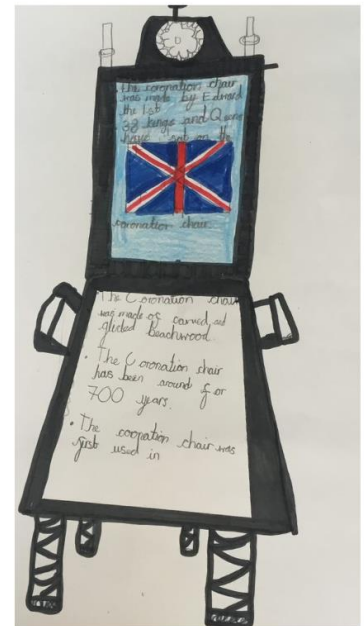 The coronation chair
was made by Edward
the 1st
32 kings and Queens
have sat on the
coronation chair.
The Coronation chair
was made of carved and
glided Beachwood.
• The Coronation chair
has been around for
700 years.
• The coronation chair was
first used in